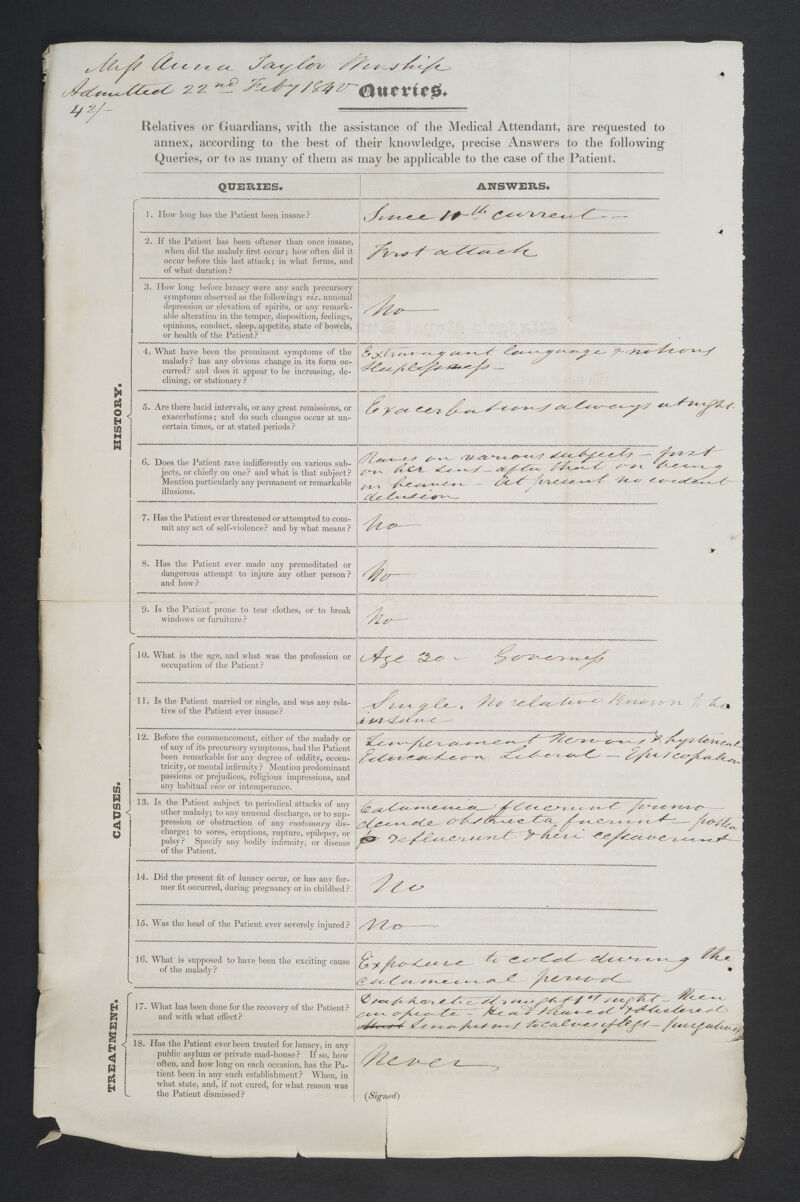 Miss Anna Taylor
Admitted 22nd Feby 1840
42/-
Queries.
Relatives or Guardians, with the assistance of the Medical Attendant, are requested to
annex, according to the best of their knowledge, precise Answers to the following
Queries, or to as many of them as may be applicable to the case of the Patient.
QUERIES.
ANSWERS.
HISTORY.
1. How long has the Patient been insane?
Since 10th current
2. If the Patient has been oftener than once insane,
when did the malady first occur; how often did it
occur before this last attack; in what forms, and
of what duration?
First attack
3. How long before lunacy were any such precursory
symptoms observed as the following; viz. unusual
depression or elevation of spirits, or any remark-
able alteration in the temper, disposition, feelings,
opinions, conduct, sleep, appetite, state of bowels,
or health of the Patient?
No
4. What have been the prominent symptoms of the
malady? has any obvious change in its form oc-
curred? and does it appear to be increasing, de-
clining, or stationary?
Extravagant language & notions
Sleeplessness -
5. Are there lucid intervals, or any great remissions, or
exacerbations; and do such changes occur at un-
certain times, or at stated periods?
Exacerbations always at night.
6. Does the Patient rave indifferently on various sub-
jects, or chiefly on one? and what is that subject?
Mention particularly any permanent or remarkable
illusions.
Raves on various subjects - first
on her sins - after that on being
in heaven - at present no evident
delusion
7. Has the Patient ever threatened or attempted to com-
mit any act of self-violence? and by what means?
No
8. Has the Patient ever made any premeditated or
dangerous attempt to injure any other person?
and how?
No
9. Is the Patient prone to tear clothes, or to break
windows or furniture?
No
CAUSES.
10. What is the age, and what was the profession or
occupation of the Patient?
Age 30 - Governess
11. Is the Patient married or single, and was any rela-
tive of the Patient ever insane?
Single. No relative known to be
insane
12. Before the commencement, either of the malady or
of any of its precursory symptoms, had the Patient
been remarkable for any degree of oddity, eccen-
tricity, or mental infirmity? Mention predominant
passions or prejudices, religious impressions, and
any habitual vice or intemperance.
Temperament Nervous & hysterical
Education Liberal - Episcopalian
13. Is the Patient subject to periodical attacks of any
other malady; to any unusual discharge, or to sup-
pression or obstruction of any customary dis-
charge; to sores, eruptions, rupture, epilepsy, or
palsy? Specify any bodily infirmity, or disease
of the Patient.
Catamenia fluerunt primo
deinde obstructa fuerunt - postea
refluerunt & heri cessaverunt
14. Did the present fit of lunacy occur, or has any for-
mer fit occurred, during pregnancy or in childbed?
No
15. Was the head of the Patient ever severely injured?
No
16. What is supposed to have been the exciting cause
of the malady?
Exposure to cold during the
catamenial period
TREATMENT.
17. What has been done for the recovery of the Patient?
and with what effect?
Diaphoretic draught 1st night - then
an opiate - Head shaved & blistered
Sinapisms to calves of legs - purgatives
18. Has the Patient ever been treated for lunacy, in any
public asylum or private mad-house? If so, how
often, and how long on each occasion, has the Pa-
tient been in any such establishment? When, in
what state, and, if not cured, for what reason was
the Patient dismissed?
Never
(Signed)